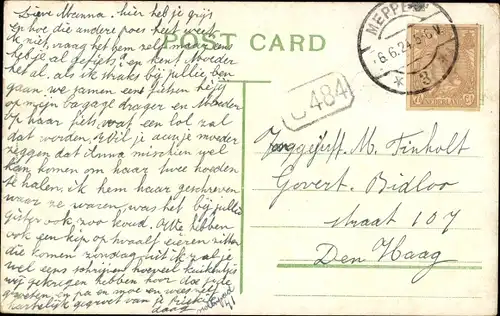 Lieve Menna, hier heb je grijs
En hoe die andere poes heet weet
ik niet, vraag het hem zelf maar eens
heb je al gefietst en kent Moeder
het al. als ik straks bij jullie ben
gaan we samen eens fietsen heijt
op mijn bagage drager en Moeder
op haar fiets, wat een lol zal
dat worden. Wil je aan je moeder
zeggen dat misschien wel
kan komen om haar twee hoeden
te halen. ik hem haar geschreven
waar ze waren, was het bij jullie
gister ook zoo koud. We hebben
ook een kip op twaalf eieren zitten
die komen zondag uit ik zal je
wel eens schrijven hoeveel kuikentjes
wij gekregen hebben hoor dag
groeten en pa en moe en wees
hartelijk gegroet van je
daag
POST CARD
MEPPEL
6.6.24 5-6 V
* 3 *
484
NEDERLAND
Jongejuff. M. Tinholt
Govert. Bidloo
straat 107
Den Haag